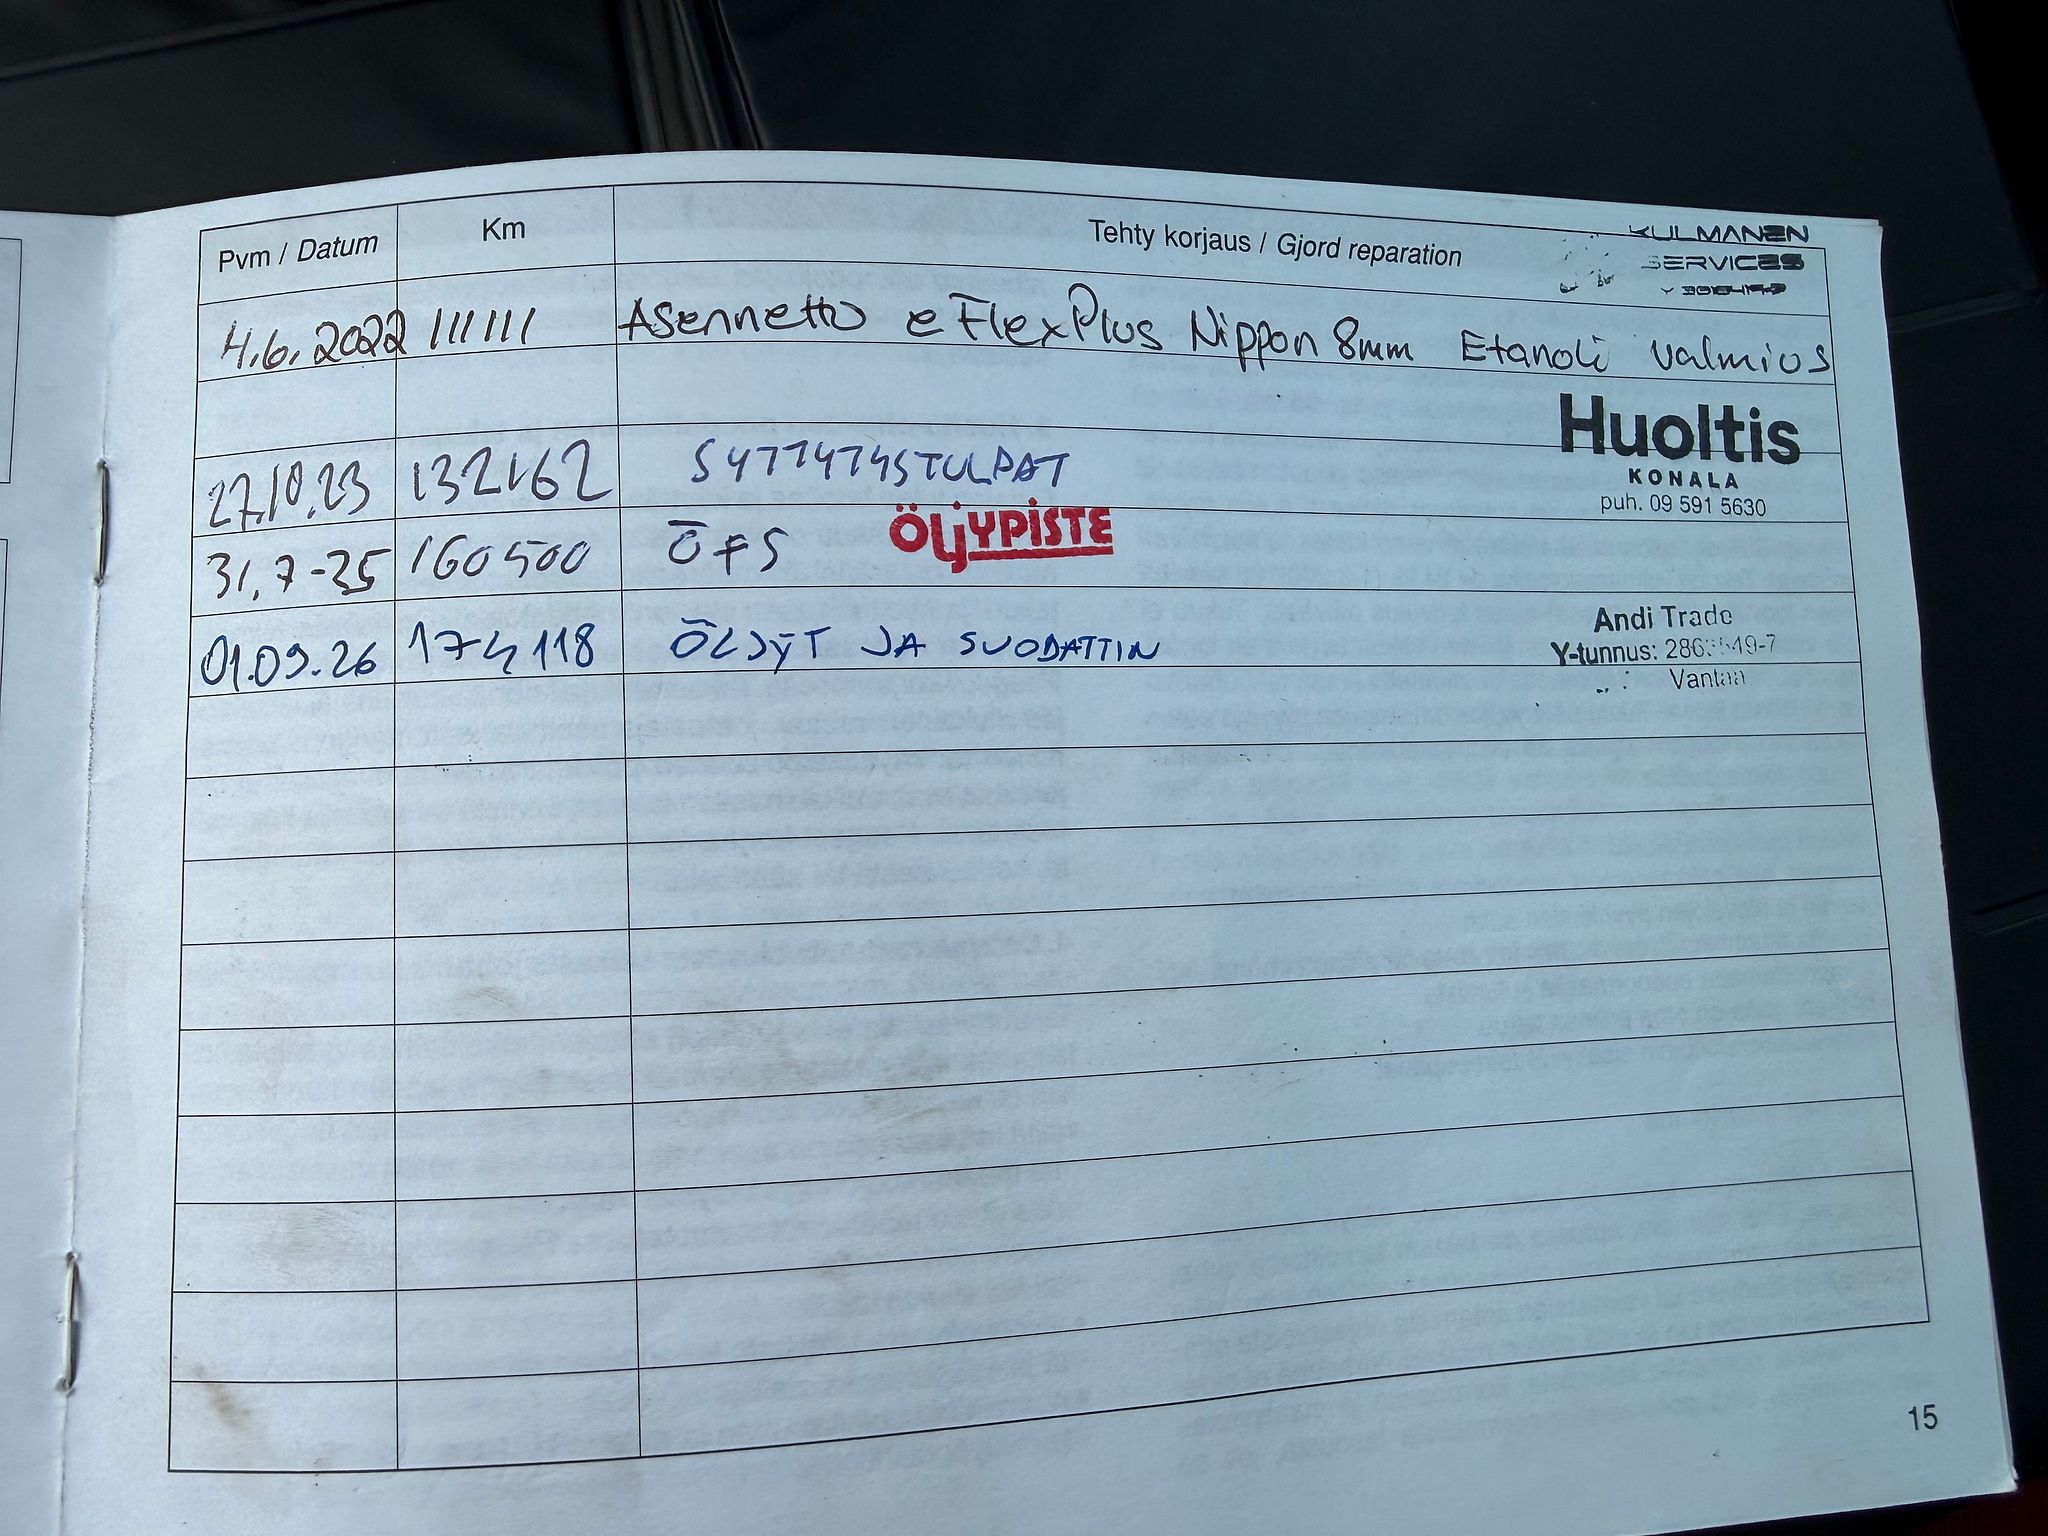 Pvm / Datum Km Tehty korjaus / Gjord reparation
KULMANEN
SERVICES
4.6.2022 111111 Asennettu eFlexPlus Nippon 8mm Etanoli valmius
Huoltis
KONALA
puh. 09 591 5630
27.10.23 132162 SYTTYTYSTULPAT
31.7-25 160500 ÖFS ÖLJYPISTE
01.09.26 174118 ÖLJYT JA SUODATTIN
Andi Trade
Y-tunnus:
Vantaa
15